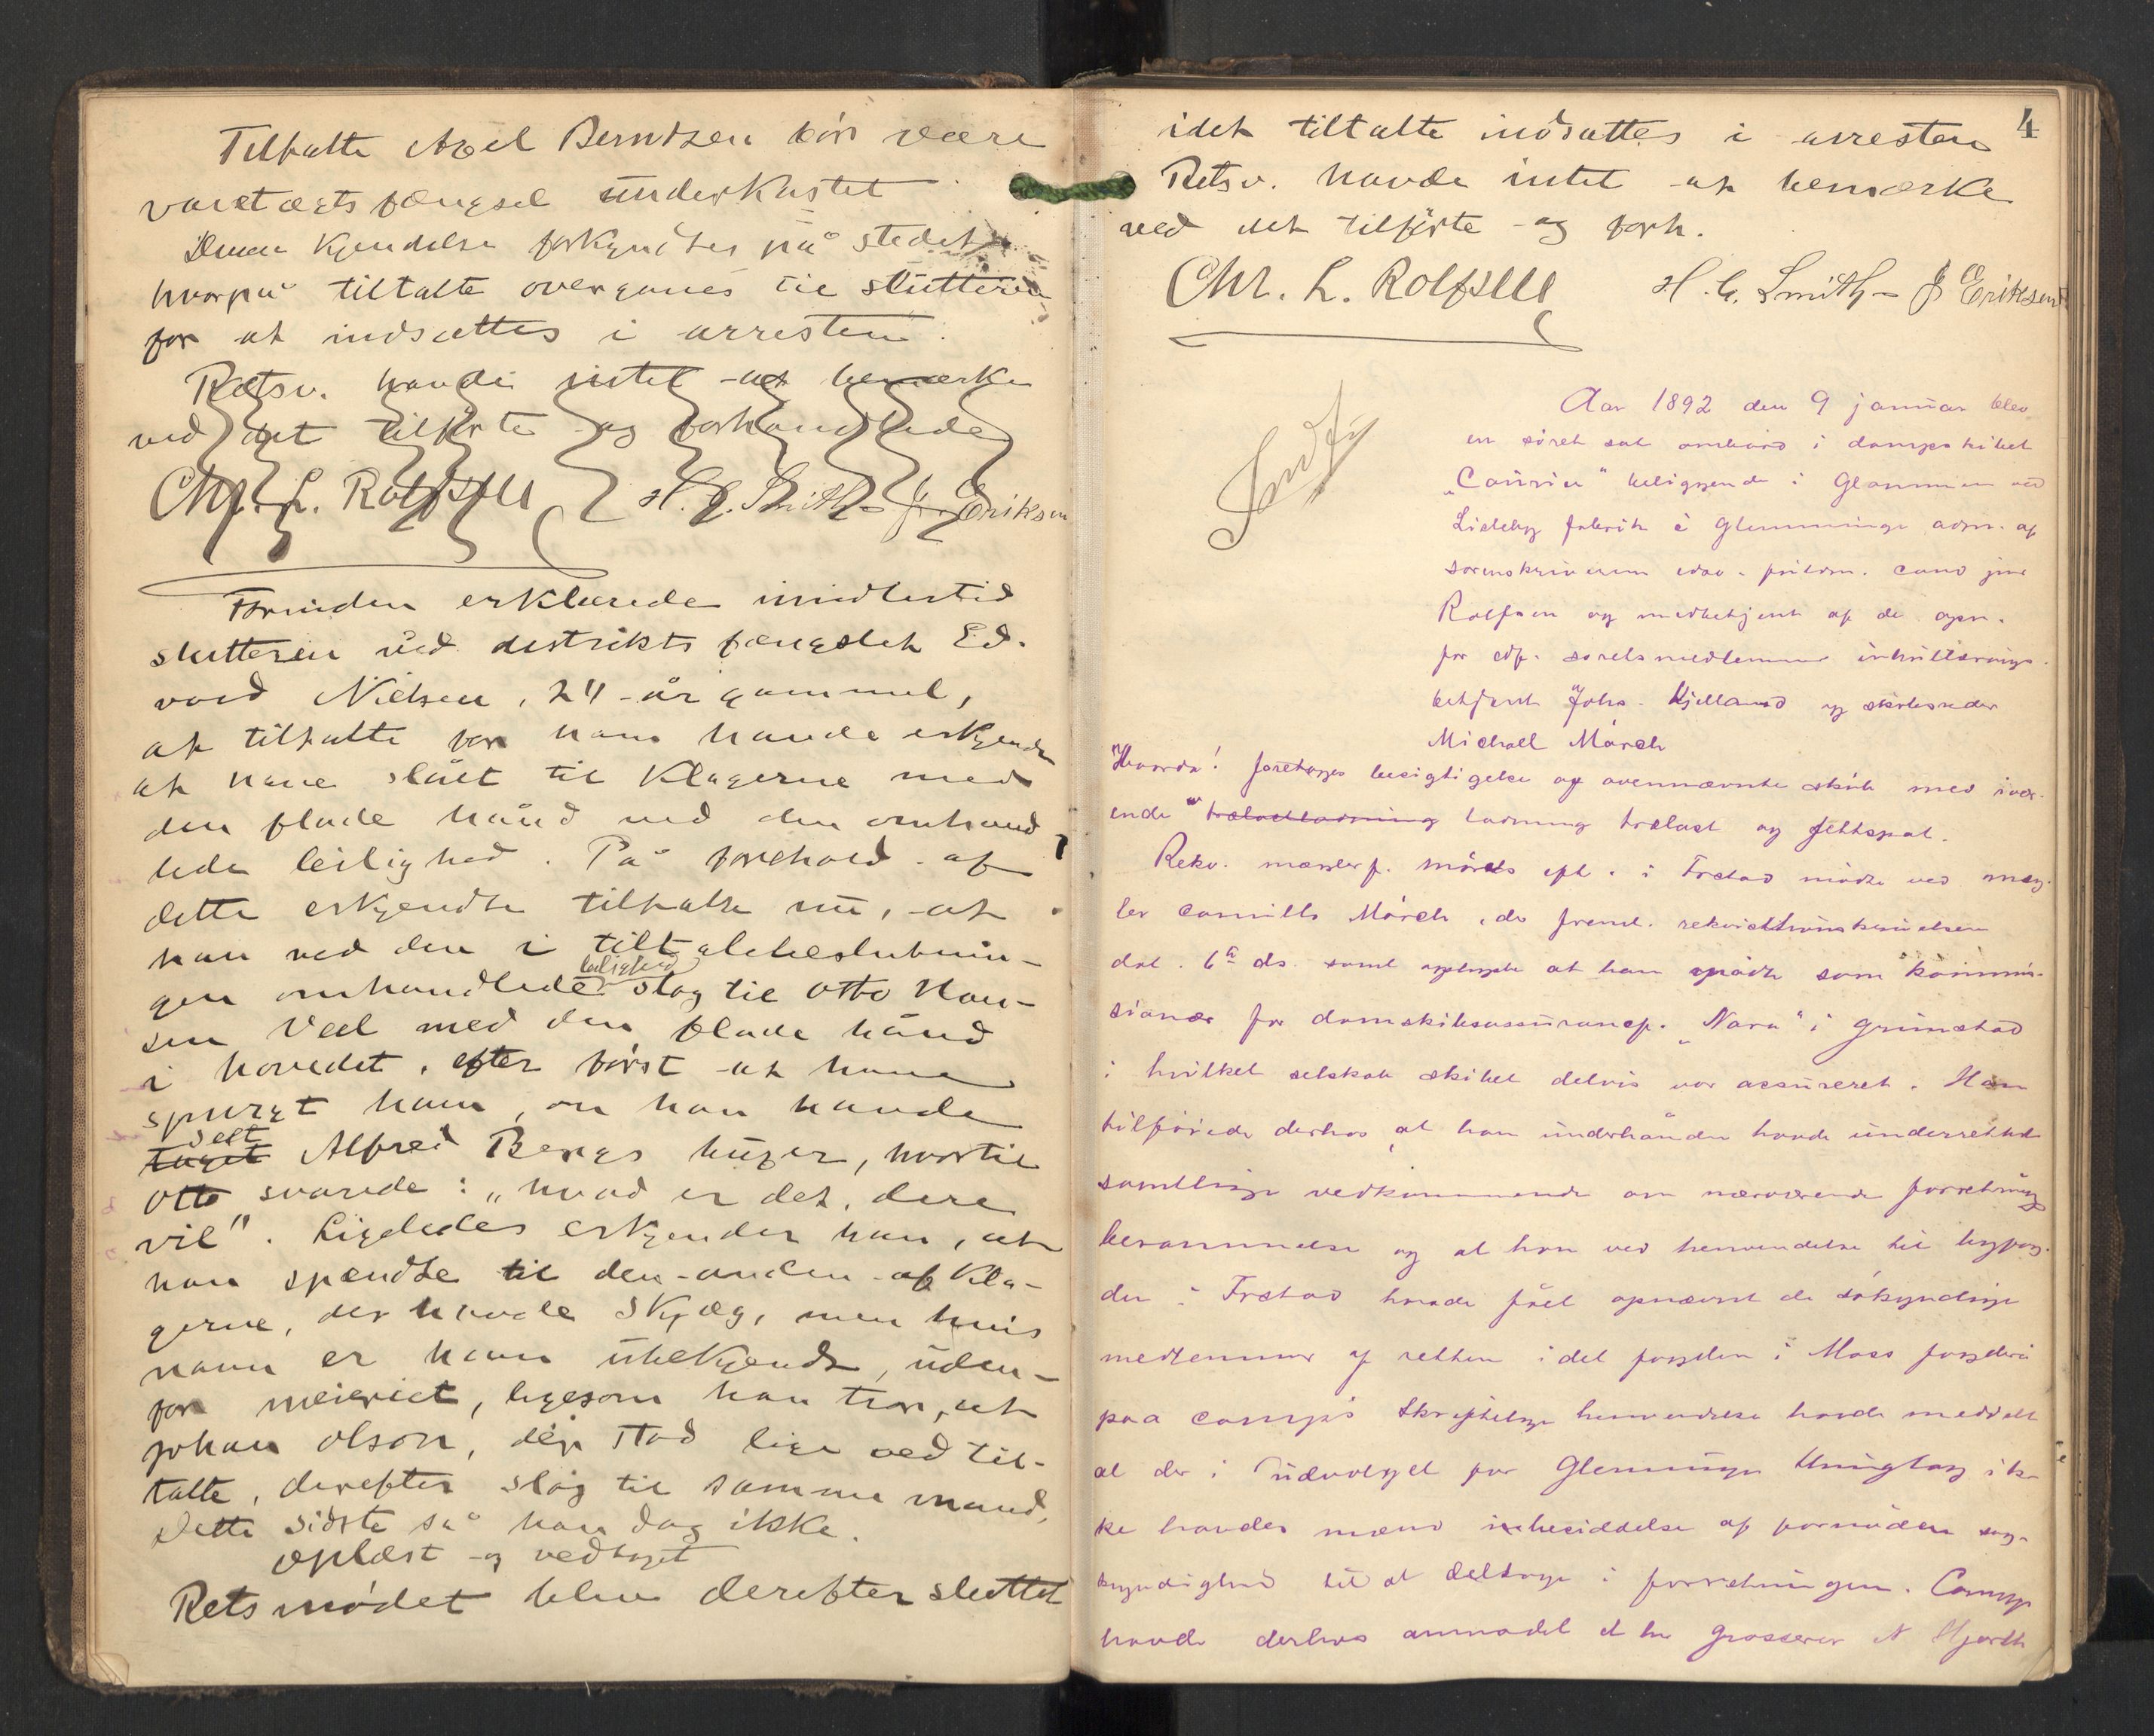 Tiltalte Axel Berntzen bør være
varetægtsfængsel underkastet
Denne kjendelse forkyndtes på stedet
hvorpå tiltalte overgaves til slutteren
for at indsættes i arresten.
Retsv. havde intet at bemærke
ved det tilførte og forhandlede
Chr. L. Rolfsen H. G. Smith J. Eriksen
Forinden erklærede imidlertid
slutteren ved distriktsfængslet Ed-
vard Nielsen, 24 år gammel,
at tiltalte for ham havde erkjendt
at have slået til klagerne med
den flade hånd ved den omhand
lede leilighed. På forehold af
dette erkjendte tiltalte nu, at
han ved den i tiltalebeslutnin-
leilighed
gen omhandlede slog til Otto Han-
sen Væl med den flade hånd
i hovedet, efter først at have
spurgt ham, om han havde
sett
taget Alfred Bergs huer, hvortil
Otto svarede: „hvad er det, dere
vil". Ligeledes erkjender han, at
han spændte til den anden af kla-
gerne, der havde skjæg, men hvis
navn er ham ubekjendt, uden-
for meieriet, ligesom han tror, at
Johan Olson, der stod lige ved til-
talte, derefter slog til samme mand.
Dette sidste så han dog ikke.
Oplæst og vedtaget
Retsmødet blev derefter sluttet
4
idet tiltalte indsattes i arresten
Retsv. havde intet at bemærke
ved det tilførte og forh.
Chr. L. Rolfsen H. G. Smith J. Eriksen
Aar 1892 den 9 januar blev
en søret sat ombord i dampskibet
„Courier" beliggende i Glommen ved
Lisleby fabrik i Glemminge adm. af
sorenskriverens edsv. fuldm. cand jur
Rolfsen og medbetjent af de opn.
for edf. søretsmedlemmer indrulleringsbetjent
Johs. Kjelland og skibsreder
Michael Mørch
Hvorda! foretages besigtigelse af ovennævnte skib med ivær-
ende trælastladning ladning trælast og feltspat.
Rekv. mæglerf. Mørchs eft. i Frstad mødte ved mæg-
ler Camillo Mørch, der freml. rekvisitionsskrivelsen
dat. 6te ds. samt oplyste at han mødte som kommis-
sionær for damskibsassuransef. „Nora" i Grimstad
i hvilket selskab skibet delvis var assureret. Han
tilføiede derhos, at han underhånden havde underrettet
samtlige vedkommende om nærværende forretnings
berammelse og at han ved henvendelse til byfog-
den i Frstad havde fået opnævnt de søkyndige
medlemmer af retten idet fogden i Moss fogderi
paa comp's skriftlige henvendelse havde meddelt
at der i udvalget for Glemminge thinglag ik-
ke havdes mænd i besiddelse af fornøden sag-
kyndighed til at deltage i forretningen. Comp
havde derhos anmodet d hr grosserer N Hjorth